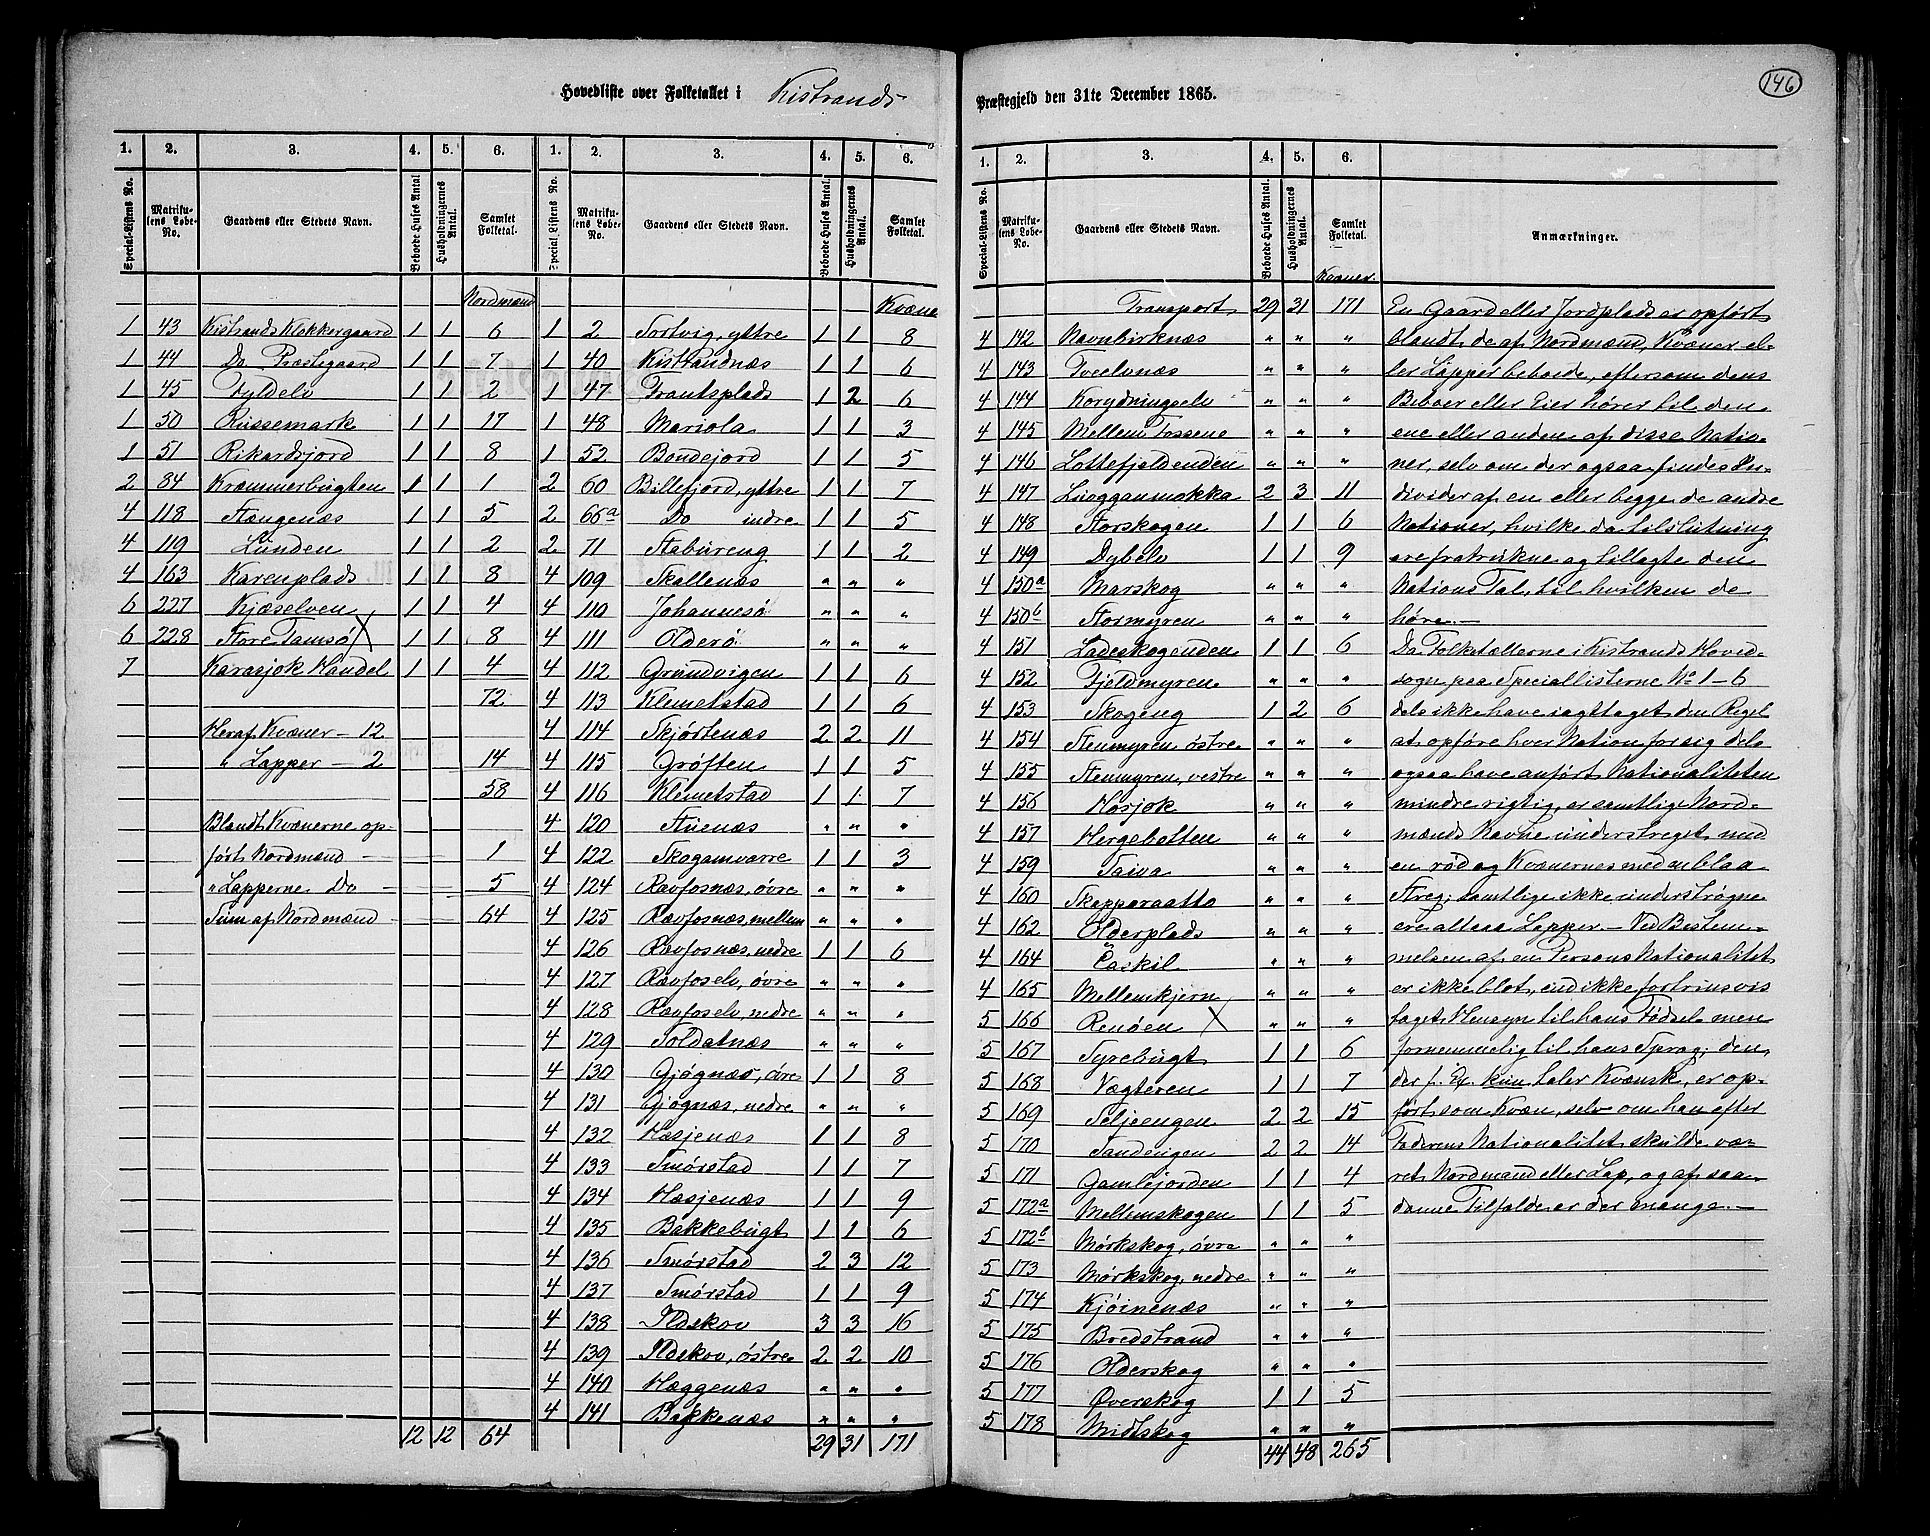 146
Hovedliste over Folketallet i Kistrands
Præstegjeld den 31te December 1865.
1. 2. 3. 4. 5. 6. 1. 2. 3. 4. 5. 6.
Special-Listens No. Matrikulens Løbe-No. Gaardens eller Stedets Navn. Beboede Huses Antal Husholdningernes Antal. Samlet Folketal. Special-Listens No. Matrikulens Løbe-No. Gaardens eller Stedets Navn. Beboede Huses Antal. Husholdningernes Antal. Samlet Folketal.
Nordmænd
1 43 Kistrands Klokkergaard 1 1 6
1 44 Do Præstegaard 1 1 7
1 45 Fyldelv 1 1 2
1 50 Russemark 1 1 17
1 51 Rikardsjord 1 1 8
2 84 Kræmmerbugten 1 1 1
4 118 Stangenæs 1 1 5
4 119 Lunden 1 1 2
4 163 Karenplads 1 1 8
6 227 Kjæselven 1 1 4
6 228 Store Tamsø X 1 1 8
7 Karasjok Handel 1 1 4
72
Heraf Kvæner — 12
" Lapper — 2 14
58
Blandt Kvænerne op-
ført Nordmænd — 1
" Lapperne Do — 5
Sum af Nordmænd 64
12 12 64
Kvæner
1 2 Sortvig, yttre 1 1 8
1 40 Kistrandnæs 1 1 6
1 47 Frantsplads 1 2 6
1 48 Mariola 1 1 3
1 52 Bondejord 1 1 5
2 60 Billefjord, yttre 1 1 7
2 66a Do indre 1 1 5
2 71 Stabureng 1 1 2
4 109 Skallenæs " " "
4 110 Johannesø " " "
4 111 Olderø " " "
4 112 Grundvigen 1 1 6
4 113 Klemetstad 1 1 6
4 114 Skjørtenæs 2 2 11
4 115 Grøften 1 1 5
4 116 Klemetstad 1 1 7
4 120 Stuenæs " " "
4 122 Skoganvarre 1 1 3
4 124 Ravfosnæs, øvre " " "
4 125 Ravfosnæs, mellem " " "
4 126 Ravfosnæs, nedre 1 1 6
4 127 Ravfoselv, øvre " " "
4 128 Ravfoselv, nedre " " "
4 129 Soldatnæs " " "
4 130 Gjøgnæs, øvre 1 1 8
4 131 Gjøgnæs, nedre " " "
4 132 Hæsjenæs 1 1 8
4 133 Smørstad 1 1 7
4 134 Hæsjenæs 1 1 9
4 135 Bakkebugt 1 1 6
4 136 Smørstad 2 3 12
4 137 Smørstad 1 1 9
4 138 Ildskov 3 3 16
4 139 Ildskov, østre 2 2 10
4 140 Hæggenæs " " "
4 141 Bakkenæs " " "
29 31 171
1. 2. 3. 4. 5. 6.
Special-Listens No. Matrikulens Løbe-No. Gaardens eller Stedets Navn. Beboede Huses Antal. Husholdningernes Antal. Samlet Folketal. Anmærkninger.
Kvæner
Transport 29 31 171
4 142 Navnbirknæs " " "
4 143 Tveelvnæs " " "
4 144 Korydningselv " " "
4 145 Mellem Fossene " " "
4 146 Lottefjeldenden " " "
4 147 Luogganmokka 2 3 11
4 148 Storskogen 1 1 6
4 149 Dybelv 1 1 9
4 150a Marskog " " "
4 150b Stormyren " " "
4 151 Ladeskogenden 1 1 6
4 152 Fjeldmyren " " "
4 153 Skogeng 1 2 6
4 154 Stenmyren, østre " " "
4 155 Stenmyren, vestre " " "
4 156 Hosjok " " "
4 157 Hergebotten " " "
4 159 Taiva " " "
4 160 Skepparaatto " " "
4 162 Olderplads " " "
4 164 Caskil " " "
4 165 Mellemkjern " " "
5 166 Renøen X " " "
5 167 Tyrebugt 1 1 6
5 168 Vægteren 1 1 7
5 169 Seljeengen 2 2 15
5 170 Sandengen 2 2 14
5 171 Gamlejorden 1 1 4
5 172a Mellemskogen 1 1 5
5 172b Mørkskog, øvre " " "
5 173 Mørkskog, nedre " " "
5 174 Kjøinenæs " " "
5 175 Bredstrand " " "
5 176 Olderskog " " "
5 177 Øverskog 1 1 5
5 178 Midtskog " " "
44 48 265
En Gaard eller Jordplads er opført
blandt de af Nordmænd, Kvæner el-
ler Lapper beboede, eftersom dens
Beboer eller Eier hører til den
ene eller anden af disse Natio-
ner, selv om der ogsaa findes In-
divider af en eller begge de andre
Nationer, hvilke da tilslutning
ere fratrukne og tillagte den
Nations Tal, til hvilken de
høre.—
Da Folketællerne i Kistrands Hoved-
sogn paa Speciallisterne No 1-6
dels ikke have iagttaget den Regel
at opføre hver Nation for sig dels
ogsaa have anført Nationaliteten
mindre rigtig, er samtlige Nord-
mænds Navne understreget med
en rød og Kvænernes med en blaa
Streg; samtlige ikke understrøgne
ere altsaa Lapper.— Ved Bestem-
melsen af en Persons Nationalitet
er ikke blot, eid ikke fortrinsvis
taget Hensyn til hans Fødsel men
fornemmelig til hans Sprog; den
der f. Ex. kun taler Kvænsk, er op-
ført som Kvæn, selv om han efter
Faderens Nationalitet skulde væ-
ret Nordmand eller Lap, og af saa-
danne Tilfælde er der mange.—